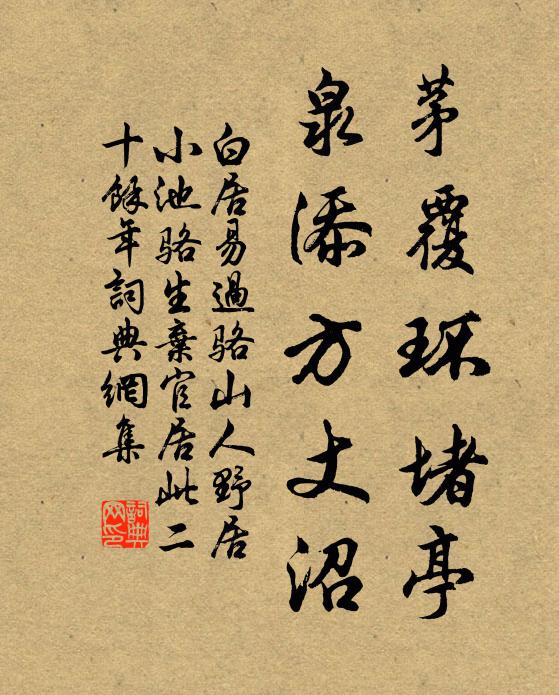 茅覆环堵亭
泉添方丈沼
白居易過骆山人野居
小池骆生棄官居此二
十餘年詞典網集
詞典
网印